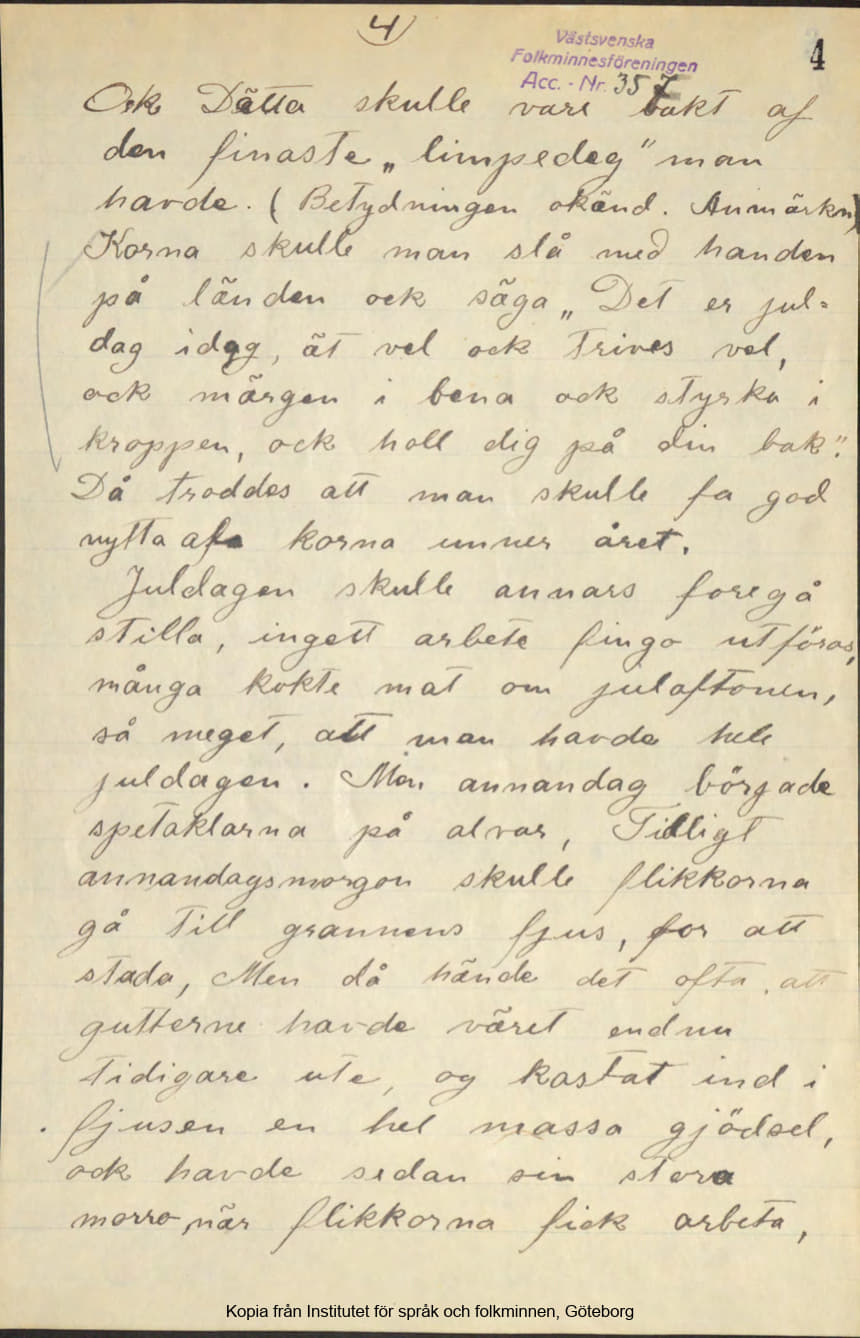 4
Västsvenska
Folkminnesföreningen
Acc. - Nr. 357
4
Ock Dätta skulle vare bakt af
den finaste „limpedeg" man
havde. (Betydningen okänd. Anmärkn)
Korna skulle man slå med handen
på länden ock säga „Det er jul=
dag idag, ät vel ock trives vel,
ock märgen i bena ock styrka i
kroppen, ock holl dig på din bak".
Då troddes att man skulle fa god
nytta af korna unner året.
Juldagen skulle annars foregå
stilla, ingett arbete fingo utföras,
många kokte mat om julaftonen,
så meget, att man havde hele
juldagen. Men annandag började
spetaklarna på alvar, Tidligt
annandagsmorgon skulle flikkorna
gå till grannens fjus, for att
stada, Men då hände det ofta att
gutterne havde väret endnu
tidigare ute, og kastat ind i
fjusen en hel massa gjödsel,
ock havde sedan sin stora
morro, när flikkorna fick arbeta,
Kopia från Institutet för språk och folkminnen, Göteborg